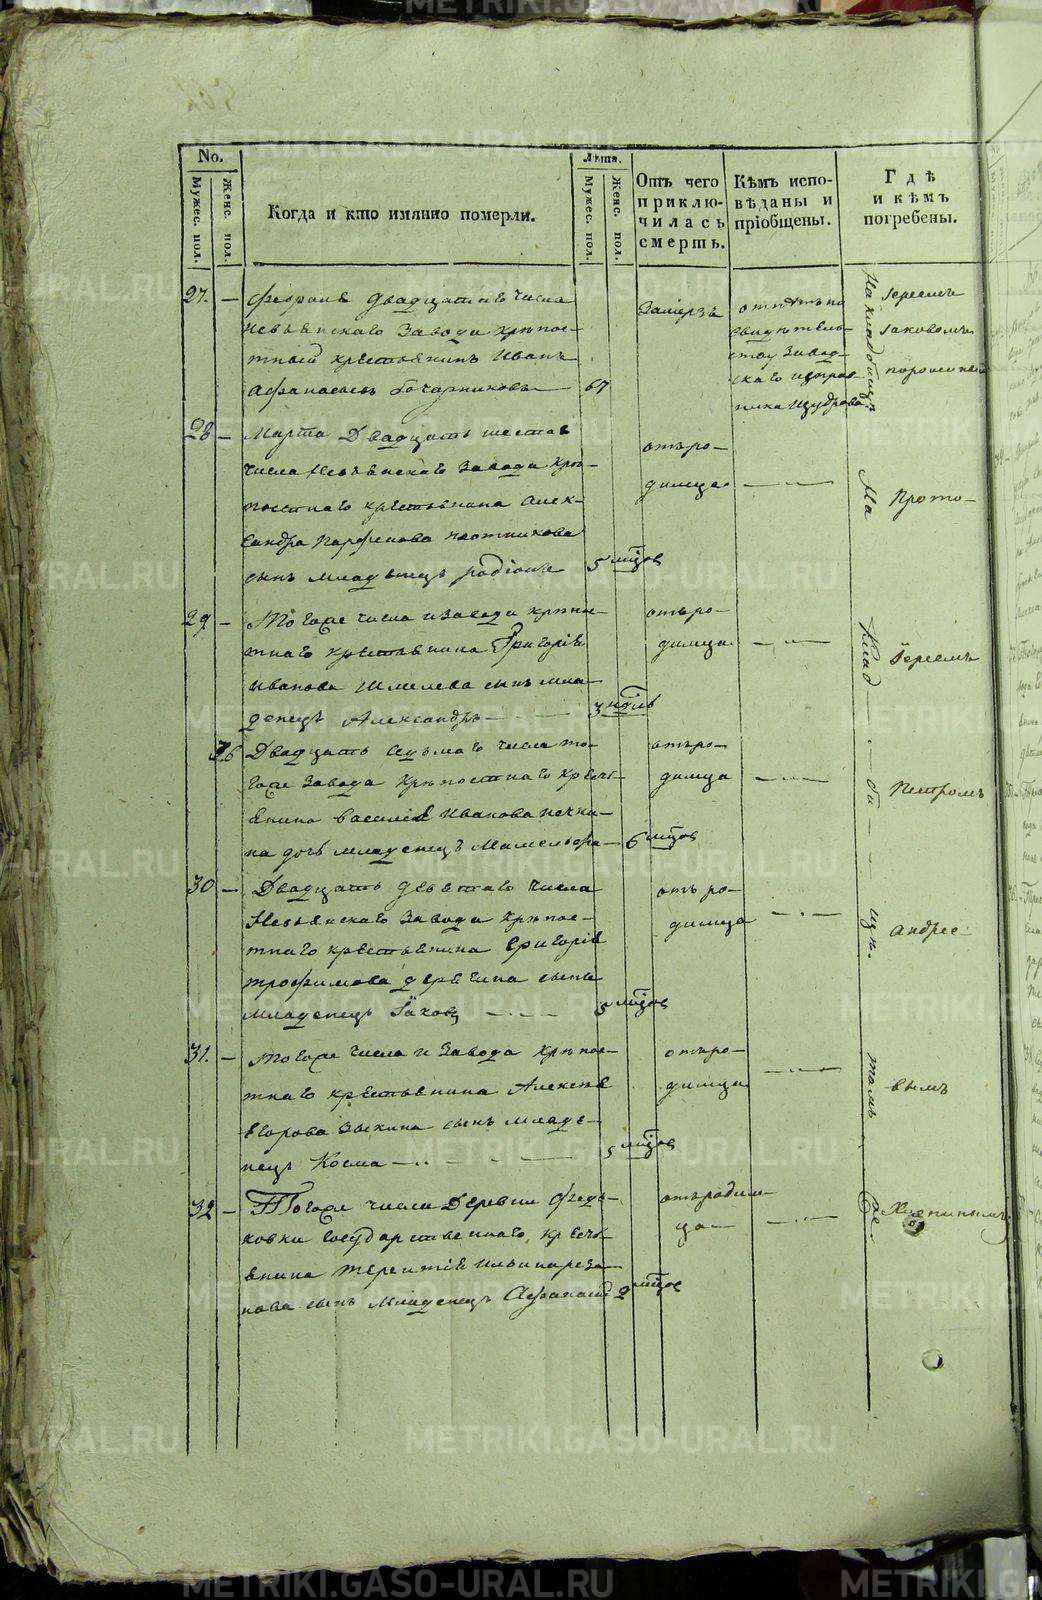 No.
Лѣта.
Мужес. пол.
Женс. пол.
Когда и кто имянно померли.
Мужес. пол.
Женс. пол.
Отъ чего
приклю-
чилась
смерть.
Кѣмъ испо-
вѣданы и
пріобщены.
Гдѣ
и кѣмъ
погребены.
27. — Февраля двадцатаго числа
Невьянскаго Завода крѣпос-
тный крестьянинъ Иванъ
Афанасьевъ Бочарниковъ — 67
Замерзъ
отпѣтъ по
свидѣтель-
ству Завод-
скаго исправ-
ника
На кладбищѣ
Іереемъ
Іаковомъ
28 — Марта Двадцать шестаго
числа Невьянскаго Завода крѣ-
постнаго крестьянина Алек-
сандра Парфенова Плотникова
сынъ младенецъ Родіонъ 5 мѣсцов
отъ ро-
димца — „ —
На
Прото-
29. — Тогоже числа и Завода крѣпос-
тнаго крестьянина Григорія
Иванова Шмелева сынъ мла-
денецъ Александръ — 3 недѣль
отъ ро-
димца — „ —
Клад
Іереемъ
26 Двадцать седьмаго числа то-
гоже Завода крѣпостнаго кресть-
янина Василія Иванова Печки-
на дочь младенецъ Мамельфа — 6 мѣсцов
отъ ро-
димца — „ —
би
Петромъ
30 — Двадцать девятаго числа
Невьянскаго Завода крѣпос-
тнаго крестьянина Григорія
Трофимова Дерягина сынъ
младенецъ Іаковъ — „ — 5 мѣсцов
отъ ро-
димца — „ —
щи.
Андрее
31. — Тогоже числа и Завода крѣпос-
тнаго крестьянина Алексѣя
Егорова Зыкина сынъ младе-
нецъ Косма — „ — 5 мѣсцов
отъ ро-
димца — „ —
тамъ
вымъ
32 — Тогоже числа Деревни Федь-
ковки Государственнаго кресть-
янина Терентія Ильина Реза-
нова сынъ младенецъ Афанасій 2 мѣсцов
отъ родим-
ца — — „ —
же.
METRIKI.GASO-URAL.RU